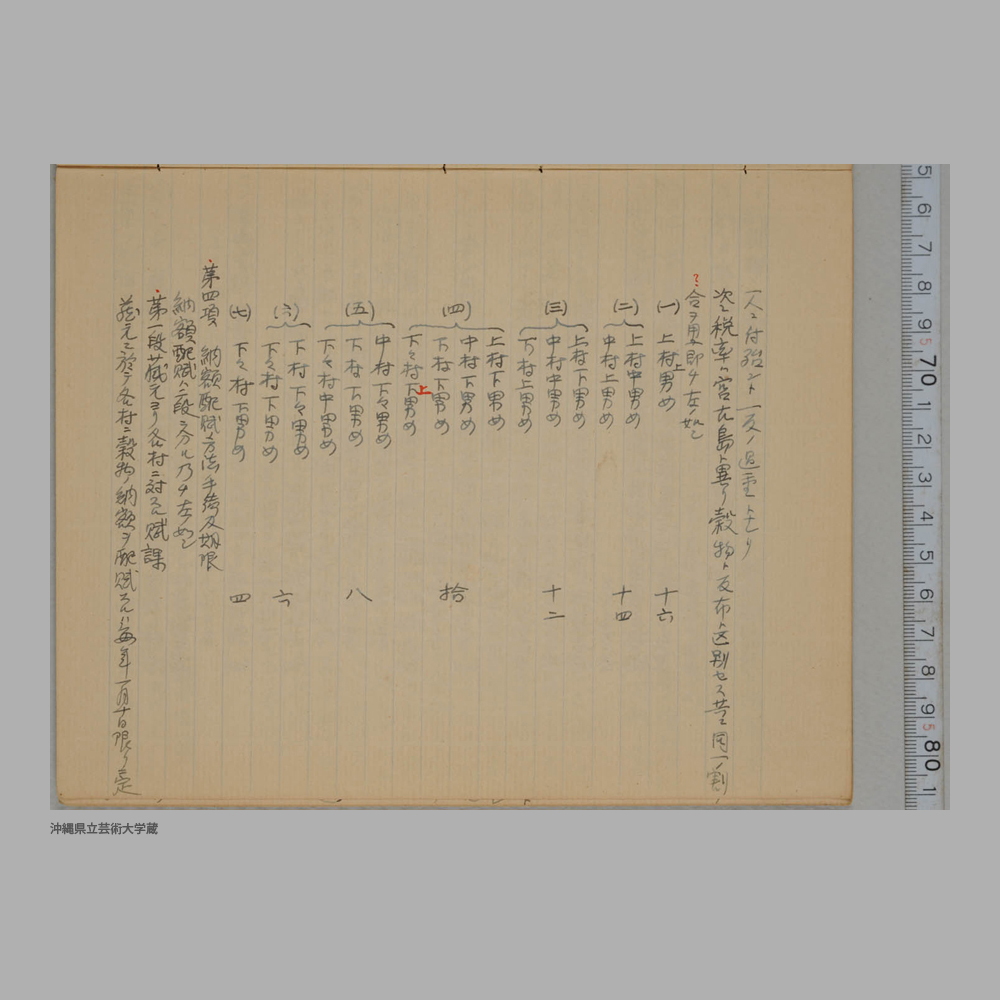 一人ニ付殆ント一反ノ過重トナリ
次ニ税率ハ宮古島ト異リ穀物ト反布ト区別セス共ニ同一ノ割
合ヲ用ユ即チ左ノ如シ
(一) 上村上男め 十六
(二) 上村中男め 十四
中村上男め
(三) 上村下男め 十二
中村中男め
下村上男め
(四) 上村下男め 拾
中村下男め
下村下男め
下々村上男め
(五) 中村下々男め 八
下村下男め
下々村中男め
(六) 下村下々男め 六
下々村下男め
(七) 下々村下男め 四
第四項 納額配賦ノ方法手続及期限
納額配賦ハ二段ニ分ル乃チ左ノ如シ
第一段蔵元ヨリ各村ニ対スル賦課
蔵元ニ於テ各村ニ穀物ノ納額ヲ配賦スルハ毎年一月十日限リ定
沖縄県立芸術大学蔵